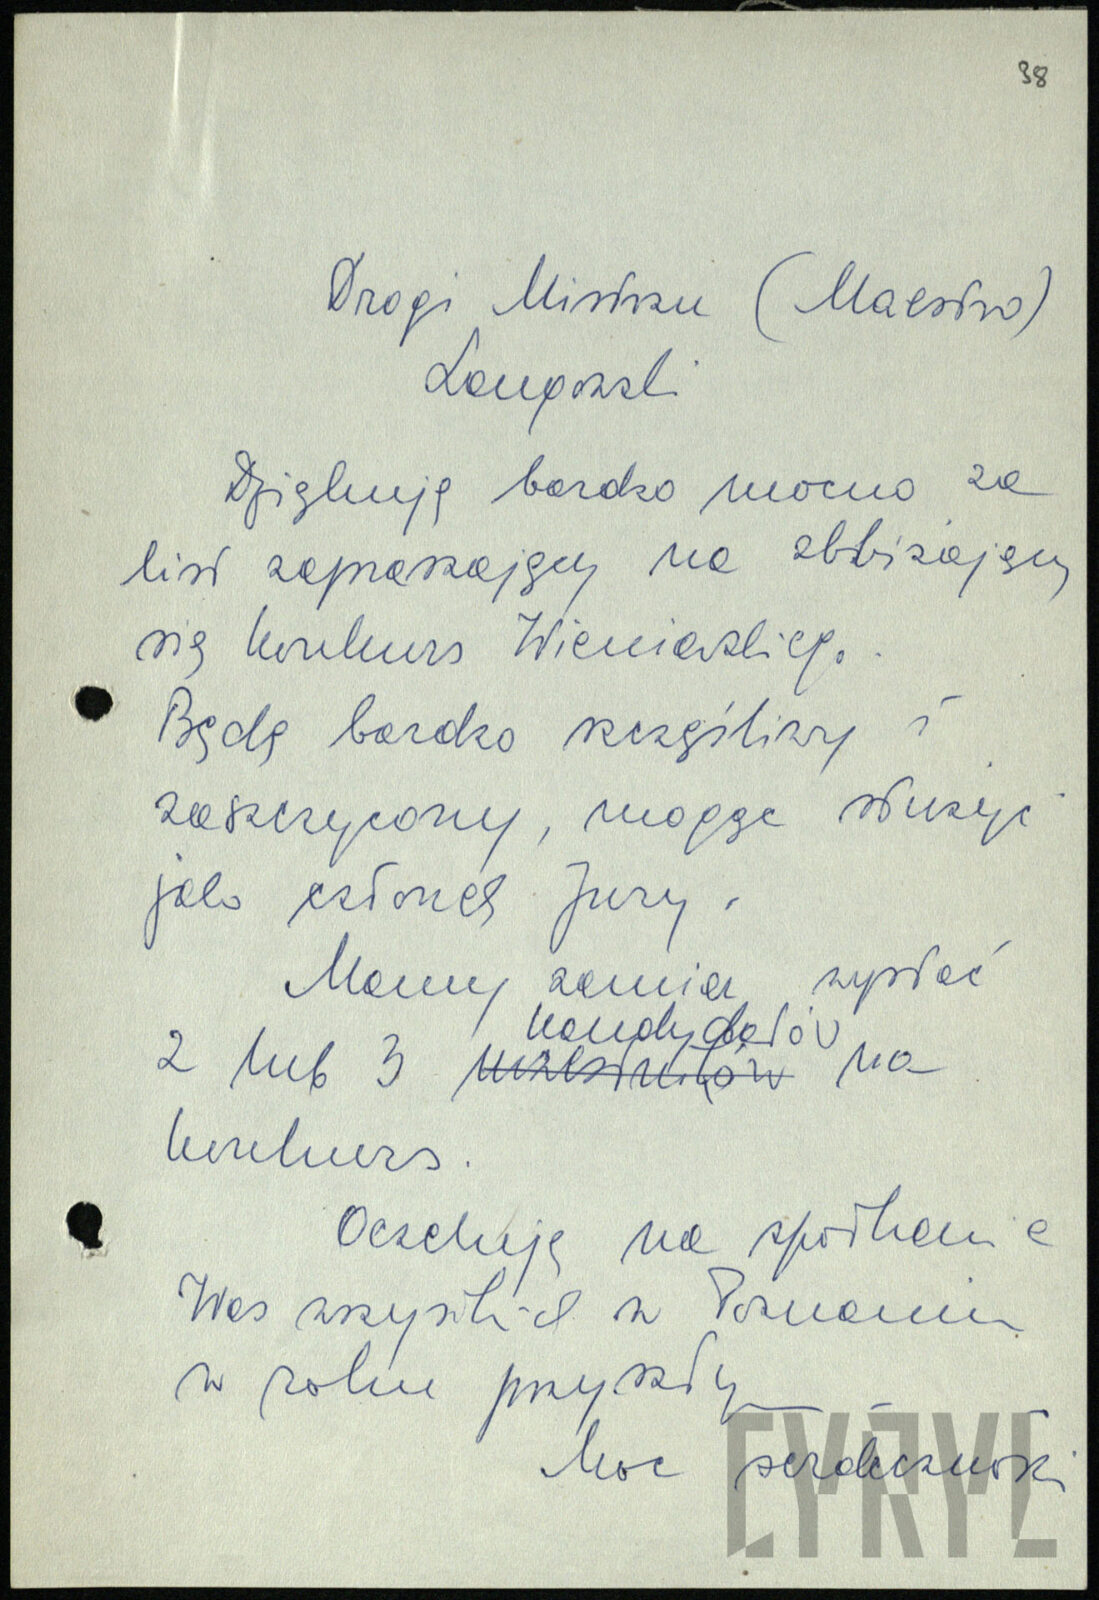 38
Drogi Mistrzu (Maestro)
Langowski
Dziękuję bardzo mocno za
list zapraszający na zbliżający
się konkurs Wieniawskiego.
Będę bardzo szczęśliwy i
zaszczycony, mogąc służyć
jako członek Jury.
Mamy zamiar wysłać
kandydatów
2 lub 3 uczestników na
konkurs.
Oczekuję na spotkanie
Was wszystkich w Poznaniu
w roku przyszłym
Moc serdeczności
CYRYL